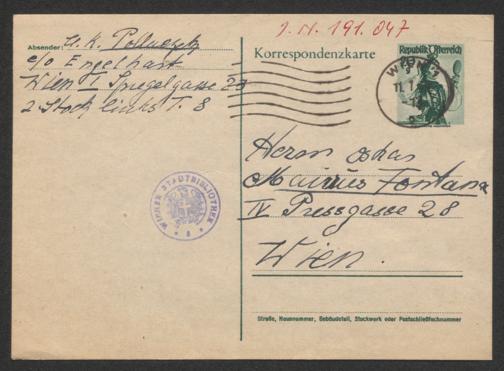 J. N. 191.047
Absender: A. K. Pollaczek
c/o Engelhart
Wien I Spiegelgasse 23
2 Stock links T. 8
Korrespondenzkarte
Republik Österreich
WIEN
WIENER STADTBIBLIOTHEK
Herrn Oskar
Maurus Fontana
IV Pressgasse 28
Wien.
Straße, Hausnummer, Gebäudeteil, Stockwerk oder Postschließfachnummer